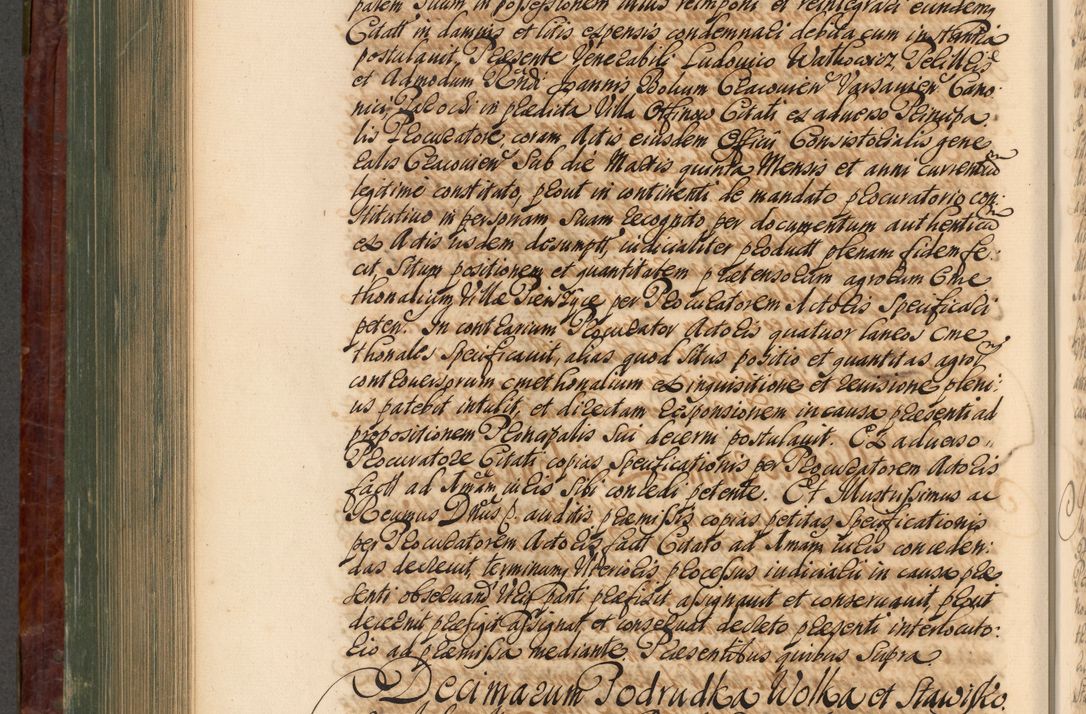 patem Suam in possessionem illius reimponi et reintegrari eundemq
Citatt in damnis et litis expensis condemnari debita cum instantia
postulavit, Præsente Venerabili Ludovico Watkowicz
et Admodum Rndi Joannis Bolum Cracovien Varsavien Cano:
nici, in prædicta Villa Citati ex adverso Principa
lis Procuratore, coram Actis eiusdem Officii Consistorialis gene
ralis Cracovien Sub die Martis quinta Mensis et anni currentium
legitime constitato, prout in continenti de mandato procuratorio con:
stitutivo in personam Suam recognito per documentum authenticum
ex Actis iisdem desumptt, iudicialiter productt plenam fidem fe
cit, Situm positionem et quantitatem prætensorum agrorum Cme
thonalium Villæ per Procuratorem Actoris Specificari
peten. In contrarium Procurator Actoris quatuor laneos Cme
thonales Specificavit, alias quod Situs positio et quantitas agror
controversorum cmethonalium ex inquisitione et revisione pleni:
us patebit intulit, et directam responsionem in causa præsenti ad
propositionem Principalis Sui decerni postulavit. Ex adverso
Procuratore Citati copias Specificationis per Procuratorem Actoris
factt ad Imam iuris Sibi concedi petente. Et Illustrissimus ac
Revmus Dnus D. auditis præmissis copias petitas Specificationis
per Procuratorem Actoris factt Citato ad Imam iuris conceden:
das decrevit, terminum Ulterioris processus iudiciarii in causa præ
senti observand Utriq parti præfixit, assignavit et conservavit, prout
decernit præfigit assignat, et conservat decreto præsenti interlocuto:
rio ad præmissa mediante Præsentibus quibus Supra.
Decimarum Podrudka Wolka et Stawisko.